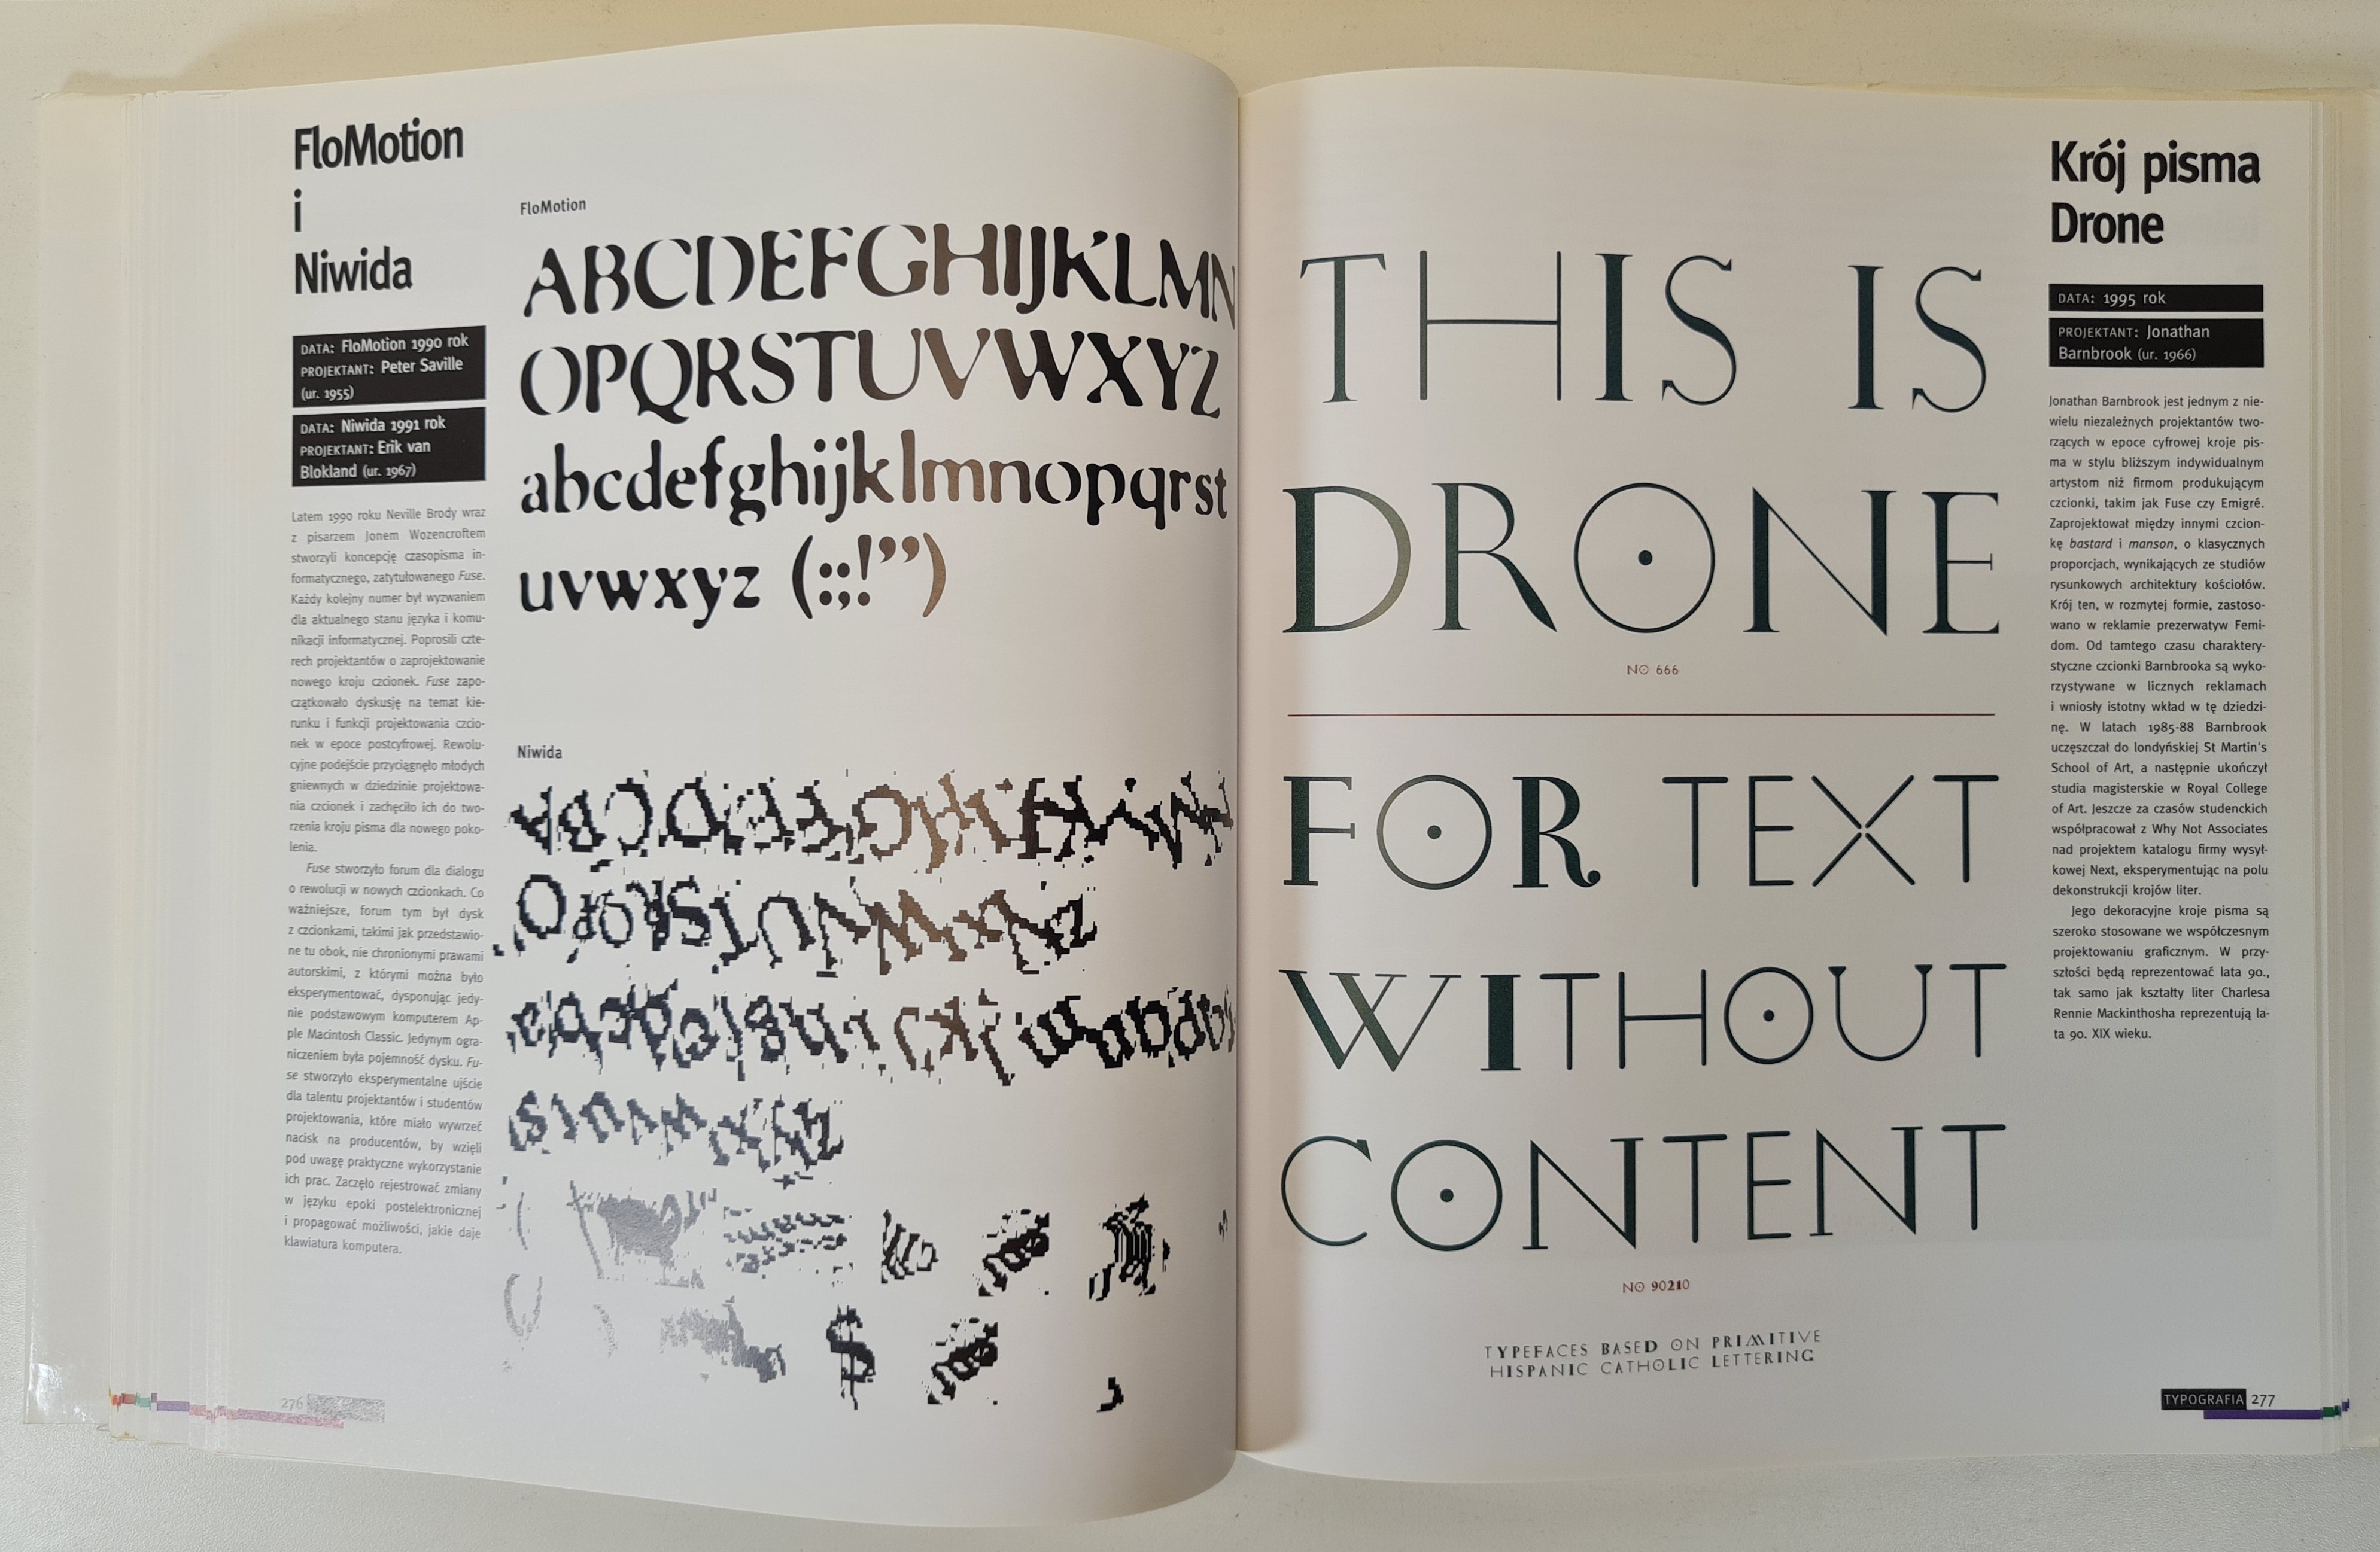 FloMotion
i
Niwida
DATA: FloMotion 1990 rok
PROJEKTANT: Peter Saville
(ur. 1955)
DATA: Niwida 1991 rok
PROJEKTANT: Erik van
Blokland (ur. 1967)
Latem 1990 roku Neville Brody wraz
z pisarzem Jonem Wozencroftem
stworzyli koncepcję czasopisma in-
formatycznego, zatytułowanego Fuse.
Każdy kolejny numer był wyzwaniem
dla aktualnego stanu języka i komu-
nikacji informatycznej. Poprosili czte-
rech projektantów o zaprojektowanie
nowego kroju czcionek. Fuse zapo-
czątkowało dyskusję na temat kie-
runku i funkcji projektowania czcio-
nek w epoce postcyfrowej. Rewolu-
cyjne podejście przyciągnęło młodych
gniewnych w dziedzinie projektowa-
nia czcionek i zachęciło ich do two-
rzenia kroju pisma dla nowego poko-
lenia.
Fuse stworzyło forum dla dialogu
o rewolucji w nowych czcionkach. Co
ważniejsze, forum tym był dysk
z czcionkami, takimi jak przedstawio-
ne tu obok, nie chronionymi prawami
autorskimi, z którymi można było
eksperymentować, dysponując jedy-
nie podstawowym komputerem Ap-
ple Macintosh Classic. Jedynym ogra-
niczeniem była pojemność dysku. Fu-
se stworzyło eksperymentalne ujście
dla talentu projektantów i studentów
projektowania, które miało wywrzeć
nacisk na producentów, by wzięli
pod uwagę praktyczne wykorzystanie
ich prac. Zaczęło rejestrować zmiany
w języku epoki postelektronicznej
i propagować możliwości, jakie daje
klawiatura komputera.
276
FloMotion
ABCDEFGHIJKLMN
OPQRSTUVWXYZ
abcdefghijklmnopqrst
uvwxyz (:;!”)
Niwida
$
THIS IS
DRONE
NO 666
FOR TEXT
WITHOUT
CONTENT
NO 90210
TYPEFACES BASED ON PRIMITIVE
HISPANIC CATHOLIC LETTERING
Krój pisma
Drone
DATA: 1995 rok
PROJEKTANT: Jonathan
Barnbrook (ur. 1966)
Jonathan Barnbrook jest jednym z nie-
wielu niezależnych projektantów two-
rzących w epoce cyfrowej kroje pis-
ma w stylu bliższym indywidualnym
artystom niż firmom produkującym
czcionki, takim jak Fuse czy Emigré.
Zaprojektował między innymi czcion-
kę bastard i manson, o klasycznych
proporcjach, wynikających ze studiów
rysunkowych architektury kościołów.
Krój ten, w rozmytej formie, zastoso-
wano w reklamie prezerwatyw Femi-
dom. Od tamtego czasu charaktery-
styczne czcionki Barnbrooka są wyko-
rzystywane w licznych reklamach
i wniosły istotny wkład w tę dziedzi-
nę. W latach 1985-88 Barnbrook
uczęszczał do londyńskiej St Martin's
School of Art, a następnie ukończył
studia magisterskie w Royal College
of Art. Jeszcze za czasów studenckich
współpracował z Why Not Associates
nad projektem katalogu firmy wysył-
kowej Next, eksperymentując na polu
dekonstrukcji krojów liter.
Jego dekoracyjne kroje pisma są
szeroko stosowane we współczesnym
projektowaniu graficznym. W przy-
szłości będą reprezentować lata 90.,
tak samo jak kształty liter Charlesa
Rennie Mackinthosha reprezentują la-
ta 90. XIX wieku.
TYPOGRAFIA 277